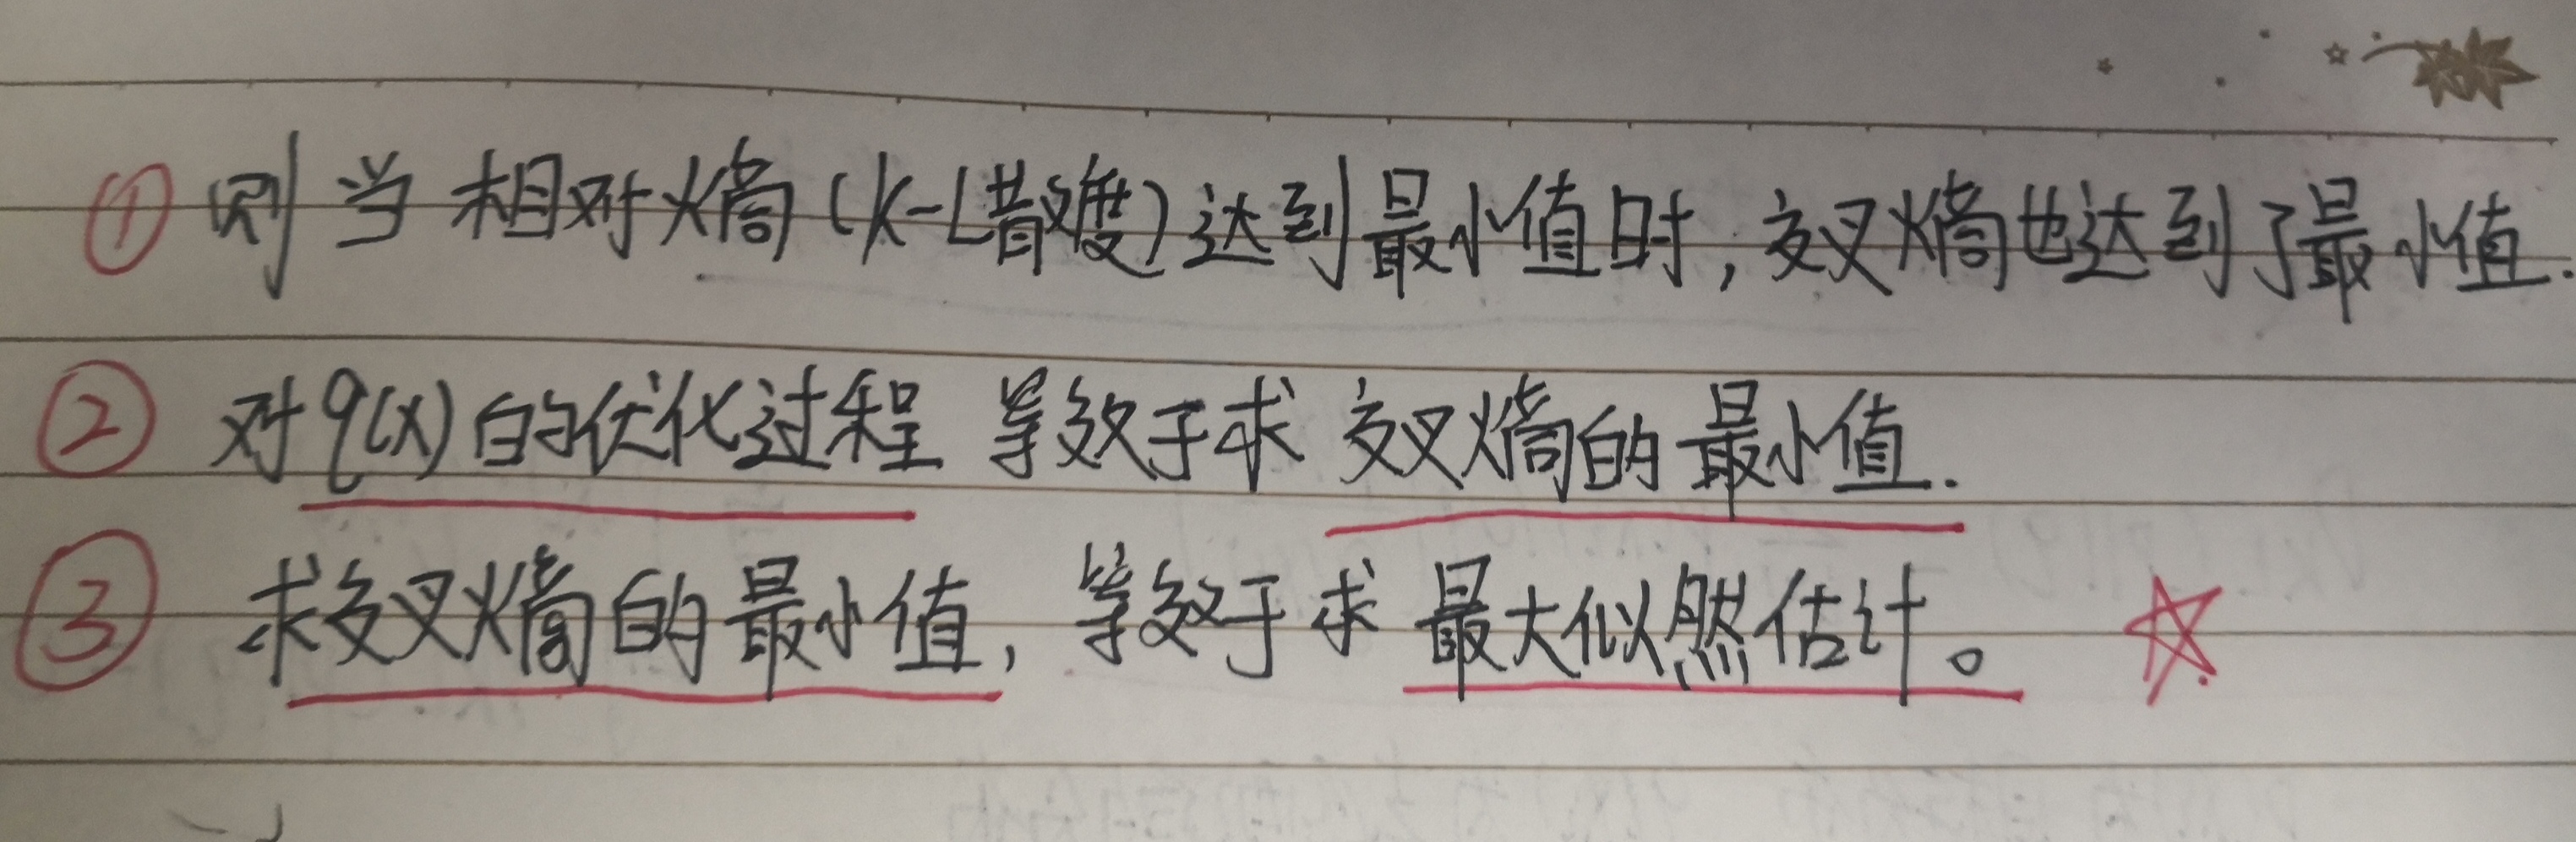 ① 则当相对熵(K-L散度)达到最小值时,交叉熵也达到了最小值.
② 对q(x)的优化过程 等效于求 交叉熵的最小值.
③ 求交叉熵的最小值,等效于求 最大似然估计。